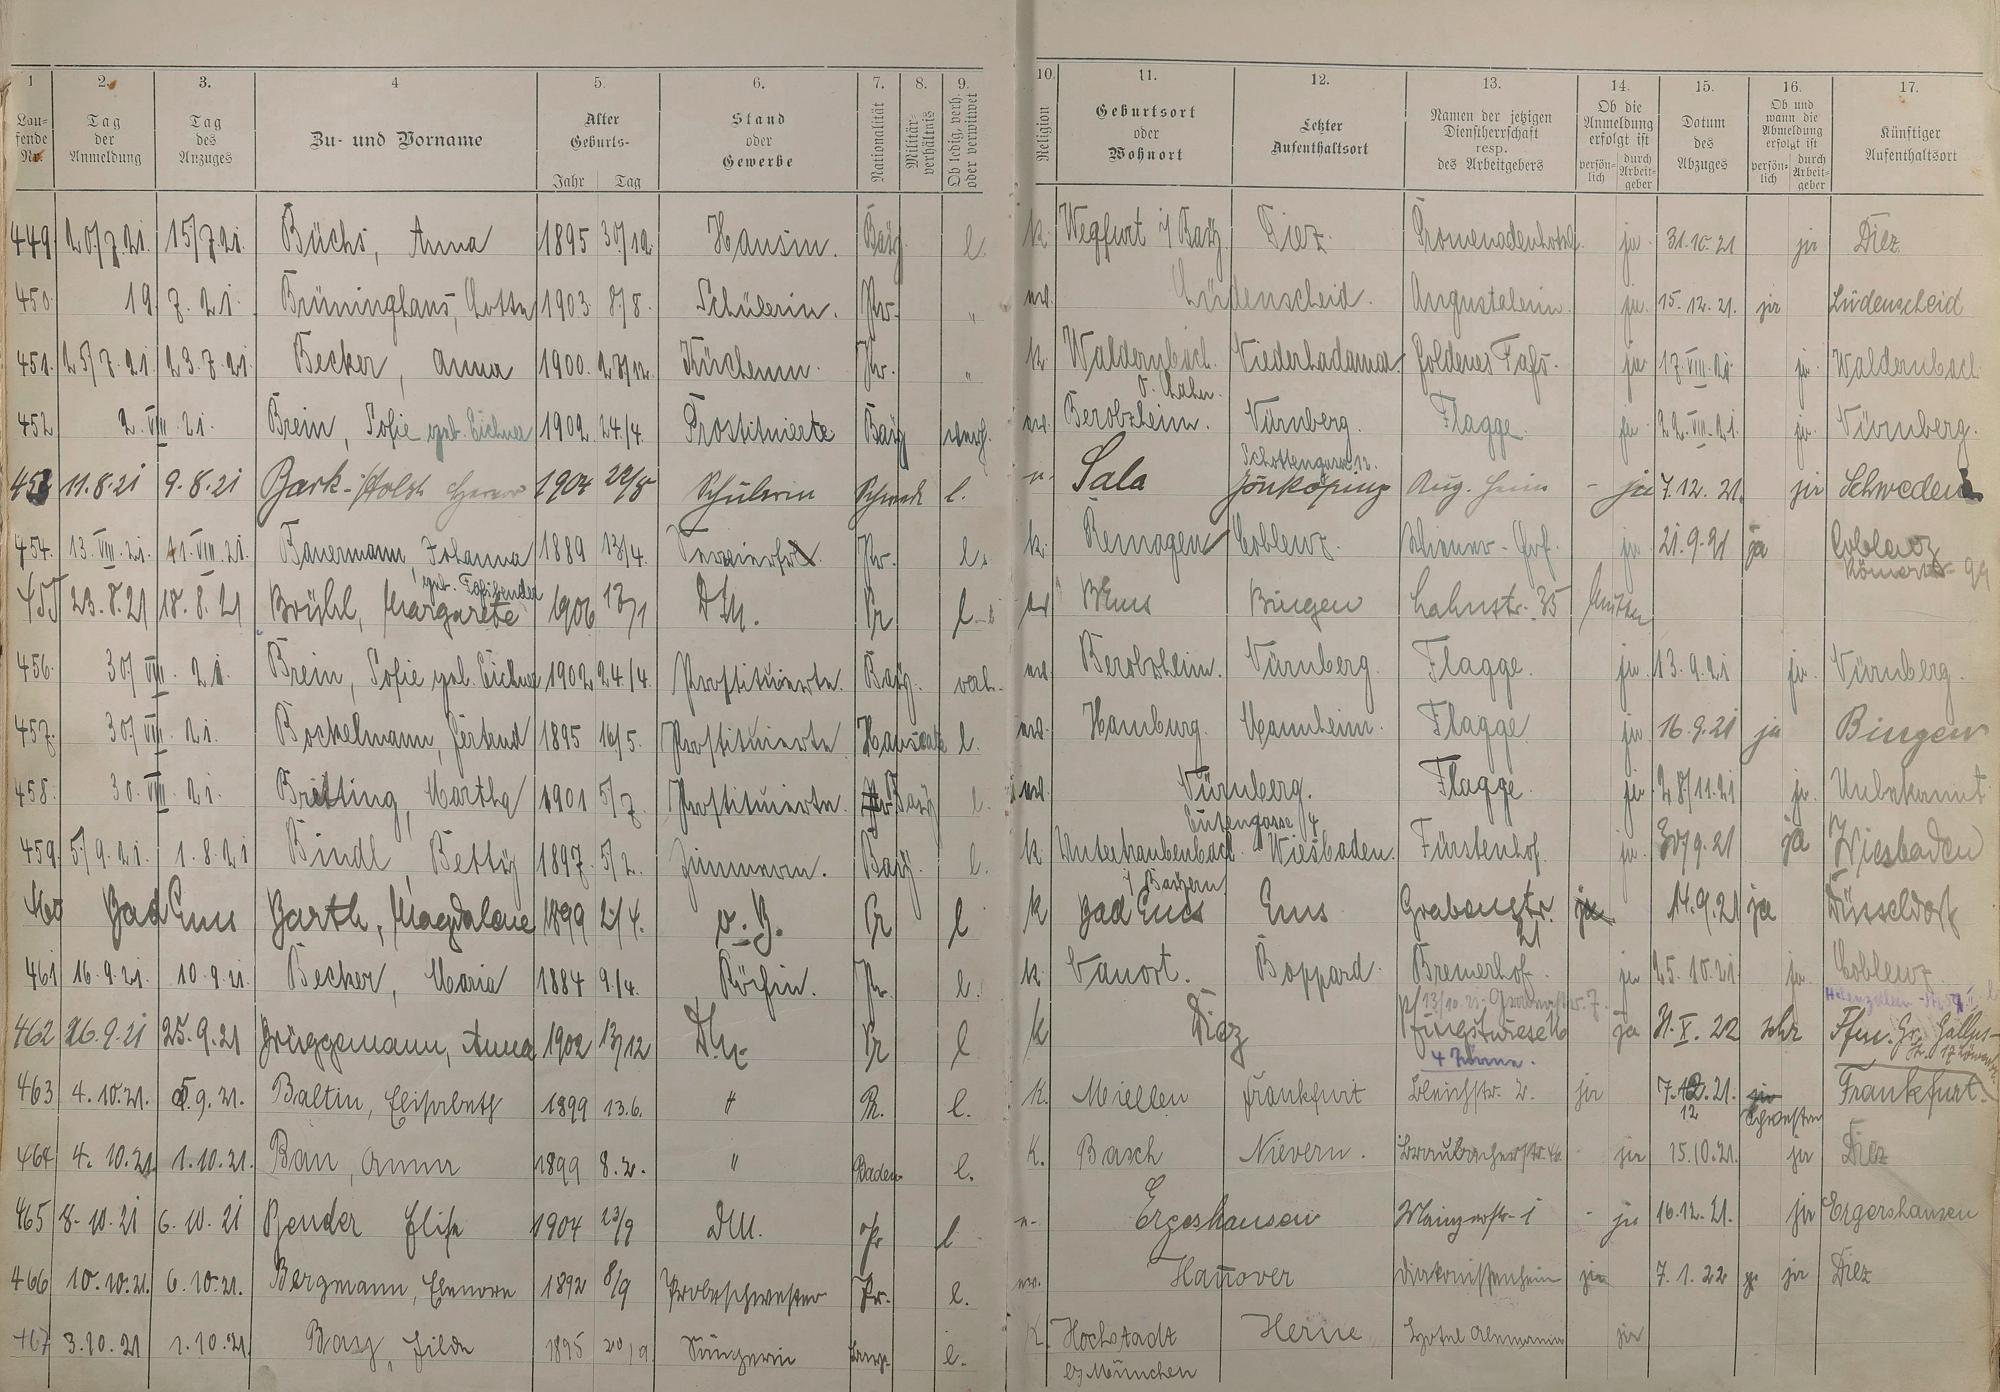 1 2. 3. 4 5. 6. 7. 8. 9. 10. 11. 12. 13. 14. 15. 16. 17.
Lau-
fende
No.
Tag
der
Anmeldung
Tag
des
Anzuges
Zu- und Vorname
Alter
Geburts-
Jahr Tag
Stand
oder
Gewerbe
Nationalität
Militär-
verhältnis
Ob ledig, verh.
oder verwitwet
Religion
Geburtsort
oder
Wohnort
Letzter
Aufenthaltsort
Namen der jetzigen
Dienstherrschaft
resp.
des Arbeitgebers
Ob die
Anmeldung
erfolgt ist
persön-
lich
durch
Arbeit-
geber
Datum
des
Abzuges
Ob und
wann die
Abmeldung
erfolgt ist
persön-
lich
durch
Arbeit-
geber
Künftiger
Aufenthaltsort
449 20/7.21. 15/7.21. Büchs, Anna 1895 30/12. Hausm. Bay. l. k. Wegfurt i/ Bay. Diez. Promenadenhotel. ja 31.10.21 ja Diez
450. 19. 7. 21. Brüninghaus, Lotte 1903. 8/8. Schülerin. Pr. " ev. Lüdenscheid. Augustaheim. ja. 15.12.21. ja Lüdenscheid
451. 25/7.21 23.7.21. Becker, Anna 1900. 28/12. Küchenm. Pr. " k. Waldernbach Niederhadamar Goldenes Faß. ja 17.VIII.21. ja. Waldernbach
452 2. VIII. 21. Brein, Sofie geb. Eichner 1902. 24/4. Prostituierte Bay ev. Berolzheim. Nürnberg. Flagge. ja 22.VIII.21. ja. Nürnberg.
453 11.8.21 9.8.21 Bark-Holst 1904 Schülerin Schwed. l. Sala Jönköping Aug. Heim - ja 7.12.21. ja Schweden
454. 13.VIII.21. 11.VIII.21. Bauermann, Johanna 1889 13/4. Pr. l. k. Remagen Coblenz. ja 21.9.21 ja Coblenz
455 23.8.21 18.8.21 Brühl, Margarete 1906 13/1 DM. Pr l. ev B Ems Bingen Lahnstr. 35 Mutter
geb. Faßbender
456. 30/VIII. 21. Brein, Sofie geb. Eichner 1902 24/4. Prostituierte. Bay. verh. ev. Berolzheim. Nürnberg. Flagge. ja 13.9.21 ja. Nürnberg.
457. 30/VIII. 21. Bockelmann, Gertrud 1895 16/5. Prostituierte l. ev. Hamburg. Mannheim. Flagge. ja 16.9.21 ja Bingen
458. 30. VIII. 21. Breiting, Martha 1901 5/7. Prostituierte. Bay l. ev. Nürnberg. Flagge. ja 28/11.21 ja. Unbekannt
459. 5/9.21. 1.8.21 Bindl, Betty 1897. 5/2. Zimmerm. Bay. l. k. Wiesbaden. Fürstenhof. ja. 30/9.21 ja Wiesbaden
i/ Bayern
460 Bad Ems Barth, Magdalene 1899 2/4. o. G. Pr l k Bad Ems Ems Grabenstr. 21 ja 14.9.21 ja Düsseldorf
461 16.9.21. 10.9.21. Becker, Maria 1884 9/4. Köchin. Pr. l. k. Boppard. Bremerhof. ja 25.10.21. ja. Coblenz.
462 26.9.21 25.9.21 Brüggemann, Anna 1902 13/12 DM. Pr l k Diez Pfingstwiese ja 31.X.22 Ffm.
463 4.10.21. 5.9.21. Baltin, Elisabeth 1899 13.6. " Pr. l. k. Miellen Frankfurt Bleichstr. 2. ja 7.12.21. Schwester Frankfurt.
464 4.10.21 1.10.21. Bau, Anna 1899 8.2. " Baden l. K. Basch Nievern. - ja 15.10.21. ja Diez
465 8.10.21 6.10.21 Bender Elise 1904 23/9 DM. Pr l Ergeshausen Mainzerstr. 1 - ja 16.12.21. ja Ergershausen
466 10.10.21. 6.10.21. Bergmann, Elenore 1892 8/9 Probeschwester Pr. l. ev. Hannover Diakonissenheim ja 7.1.22 ja Diez
467 3.10.21 1.10.21. 1895 20/9. Sängerin l. K. Hochstadt Herne Hotel Alemannia ja
bz München